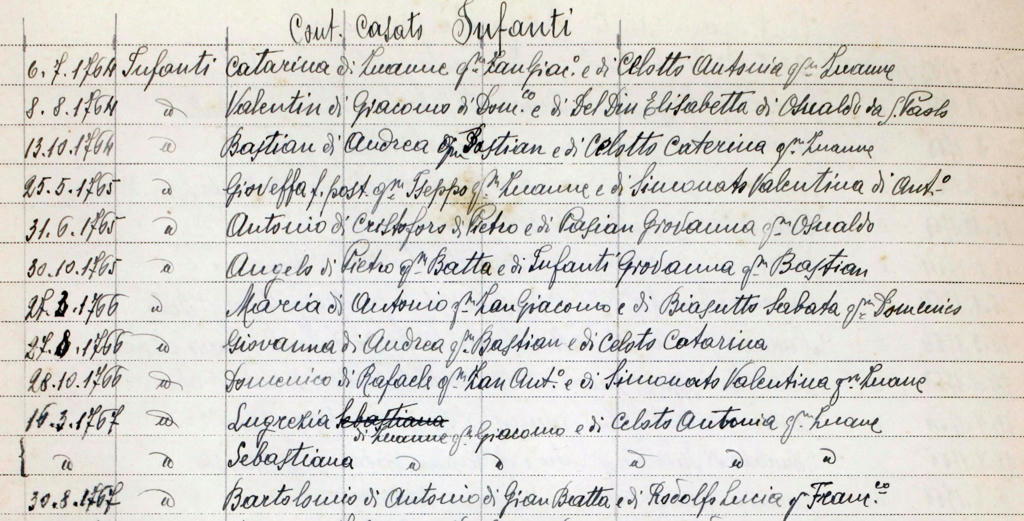 Cont. casato Infanti
6.7.1764 Infanti Catarina di Zuanne qm ZanGiac.º e di Celotto Antonia qm Zuanne
8.8.1764 " Valentin di Giacomo di Dom.co e di Del Din Elisabetta di Osualdo da S. Paolo
13.10.1764 " Bastian di Andrea qm Bastian e di Celotto Caterina qm Zuanne
25.5.1765 " Gioveffa f. post. qm Iseppo qm Zuanne e di Simonato Valentina di Ant.º
31.6.1765 " Antonio di Cristoforo di Pietro e di Pasian Giovanna qm Osualdo
30.10.1765 " Angelo di Pietro qm Batta e di Infanti Giovanna qm Bastian
27.3.1766 " Maria di Antonio qm ZanGiacomo e di Biasutto Sabata qm Domenico
27.8.1766 " Giovanna di Andrea qm Bastian e di Celoto Catarina
28.10.1766 " Domenico di Rafaele qm Zan Ant.º e di Simonato Valentina qm Zuane
16.3.1767 " Lugrezia Sebastiana di Zuanne qm Giacomo e di Celoto Antonia qm Zuane
" " Sebastiana " " " " "
30.8.1767 " Bartolomio di Antonio di Gian Batta e di Rodolfo Lucia q Franc.co